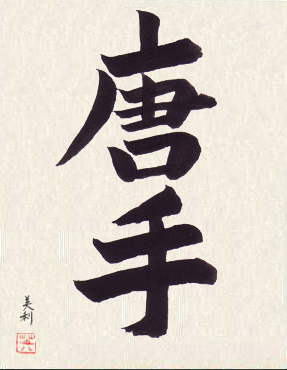 唐手
美利